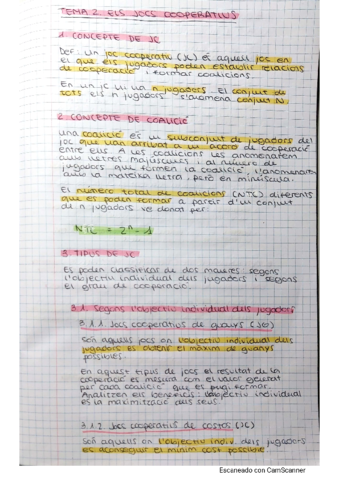 TEMA 2. ELS JOCS COOPERATIUS
1. CONCEPTE DE JC
Def: un joc cooperatiu (JC) és aquell joc en
el que els jugadors poden establir relacions
de cooperació i formar coalicions.
En un JC hi ha n jugadors. El conjunt de
tots els n jugadors s'anomena conjunt N.
2. CONCEPTE DE COALICIÓ
Una coalició és un subconjunt de jugadors del
joc que han arribat a un acord de cooperació
entre ells. A les coalicions les anomenarem
amb lletres majúscules i al número de
jugadors que formen la coalició, l'anomenarem
amb la mateixa lletra, però en minúscula.
El número total de coalicions (NTC) diferents
que es poden formar a partir d'un conjunt
de n jugadors ve donat per:
NTC = 2ⁿ - 1
3. TIPUS DE JC
Es poden classificar de dos maneres: segons
l'objectiu individual dels jugadors i segons
el grau de cooperació.
3.1. Segons l'objectiu individual dels jugadors
3.1.1. Jocs cooperatius de guanys (JG)
Són aquells jocs on l'objectiu individual dels
jugadors és obtenir el màxim de guanys
possibles.
En aquest tipus de jocs el resultat de la
cooperació es mesura com el valor generat
per cada coalició que es pugi formar.
Analitzen els beneficis: l'objectiu individual
és la maximització dels seus
3.1.2. Jocs cooperatius de costos (JC)
Són aquells on l'objectiu indiv. dels jugadors
és aconseguir el mínim cost possible
Escaneado con CamScanner